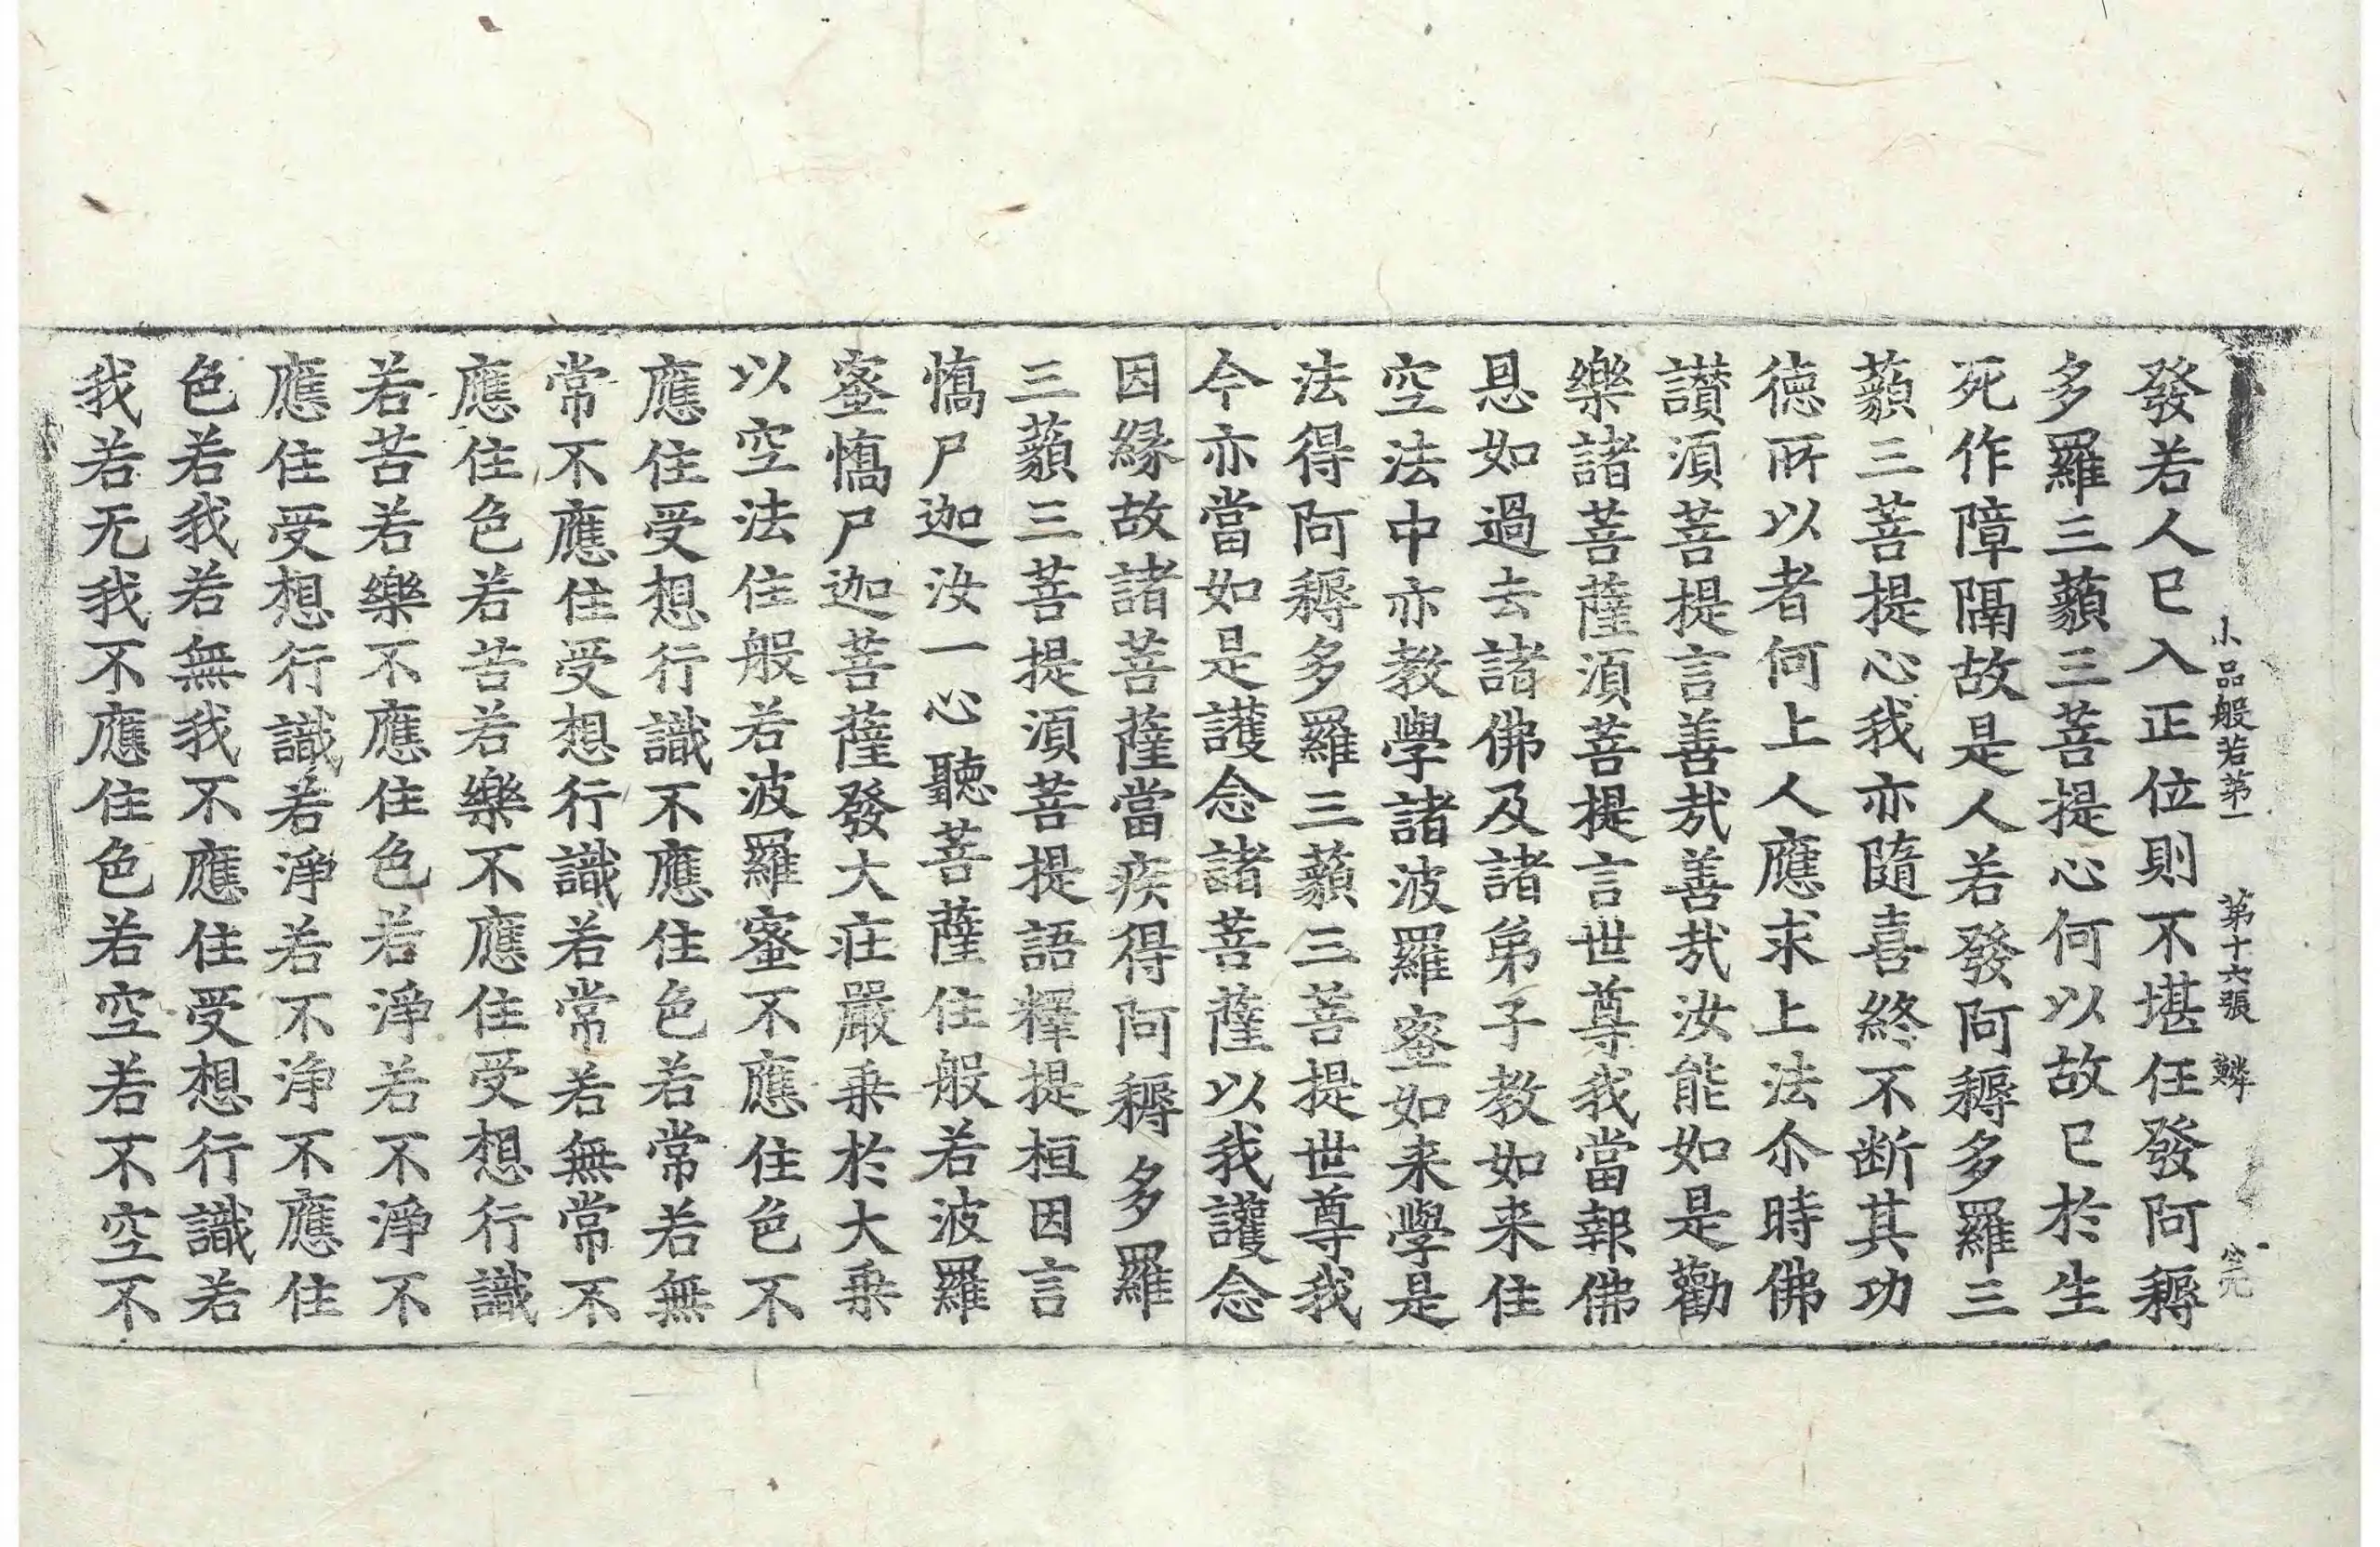 小品般若第一　第十六張　鱗　宝完
發若人已入正位則不堪任發阿耨
多羅三藐三菩提心何以故已於生
死作障隔故是人若發阿耨多羅三
藐三菩提心我亦隨喜終不断其功
徳所以者何上人應求上法尒時佛
讃須菩提言善㢤善㢤汝能如是勸
樂諸菩薩須菩提言世尊我當報佛
恩如過去諸佛及諸弟子教如来住
空法中亦教學諸波羅蜜如来學是
法得阿耨多羅三藐三菩提世尊我
今亦當如是護念諸菩薩以我護念
因縁故諸菩薩當疾得阿耨多羅
三藐三菩提須菩提語釋提桓因言
憍尸迦汝一心聽菩薩住般若波羅
蜜憍尸迦菩薩發大莊嚴乗於大乗
以空法住般若波羅蜜不應住色不
應住受想行識不應住色若常若無
常不應住受想行識若常若無常不
應住色若苦若樂不應住受想行識
若苦若樂不應住色若淨若不淨不
應住受想行識若淨若不淨不應住
色若我若無我不應住受想行識若
我若无我不應住色若空若不空不